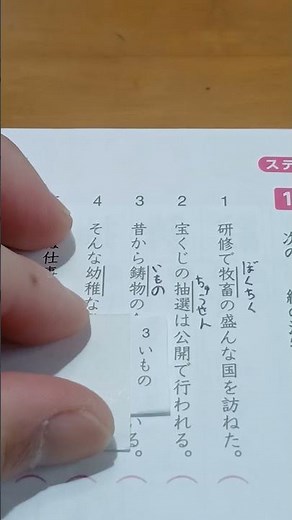 ステ
1
次の
1 研修で牧畜の盛んな国を訪ねた。
ぼくちく
2 宝くじの抽選は公開で行われる。
ちゅうせん
3 昔から鋳物の
いもの
いる。
3 いもの
4 そんな幼稚な
仕事